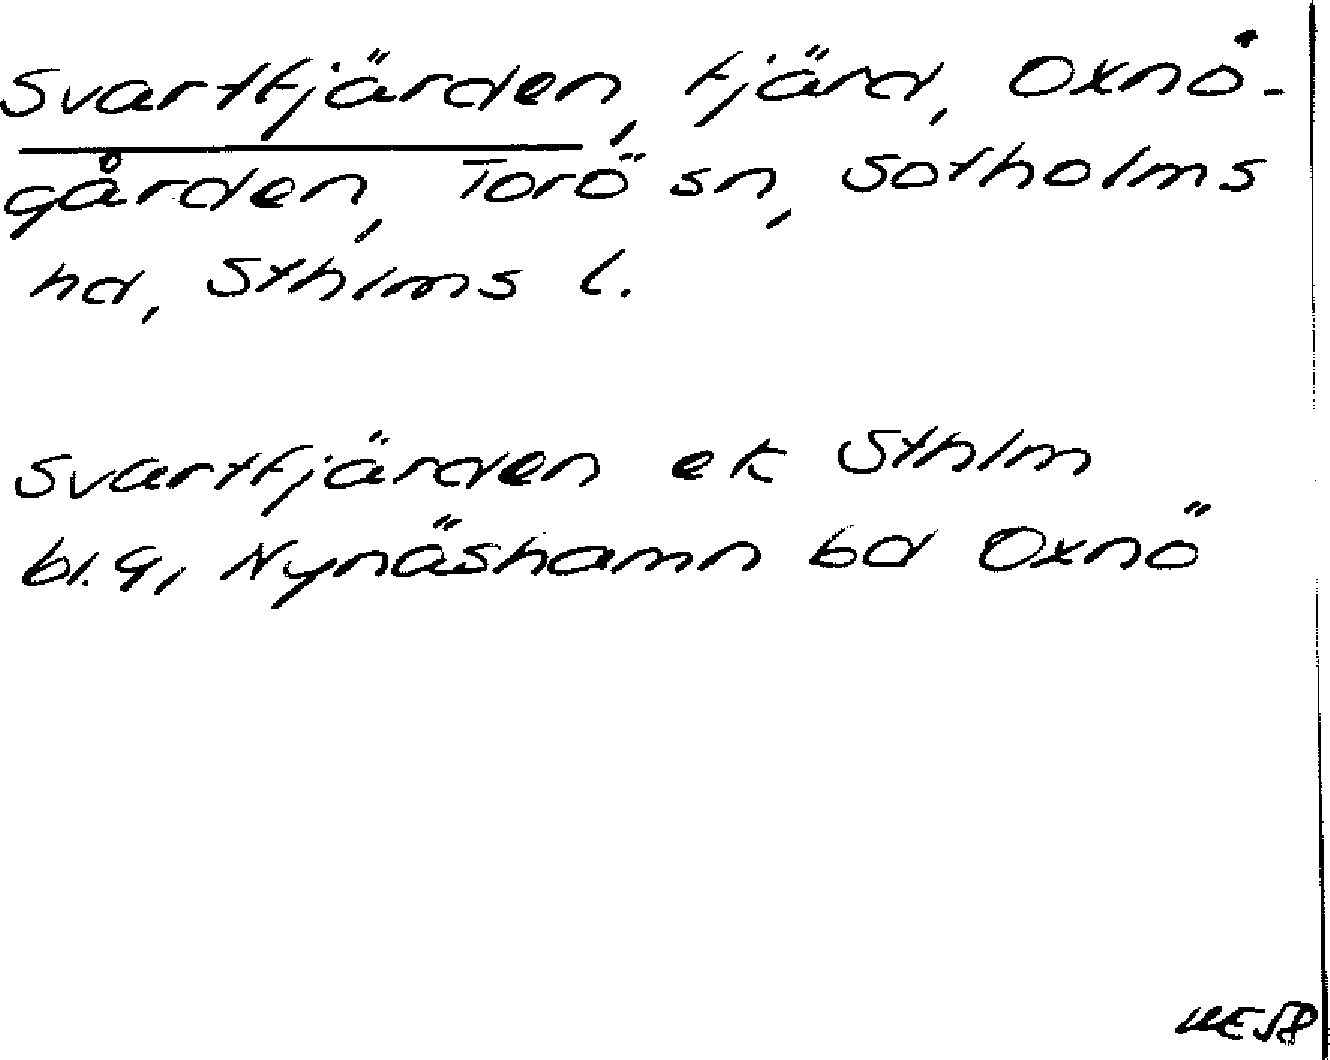 Svartfjärden, fjärd, Oxnö-
gården, Torö sn, Sotholms
hd, Sthlms l.
Svartfjärden ek Sthlm
bl. 9, Nynäshamn bd Oxnö